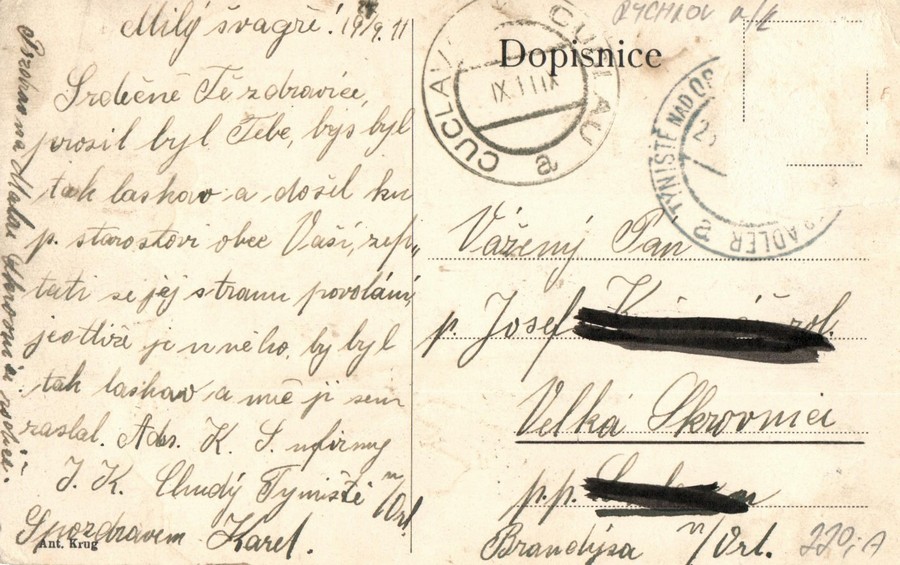 Milý švagře! 19/9. 11
Srdečně Tě zdravíce,
prosil byl Tebe, bys byl
tak laskav a došel ku
p. starostovi obce Vaší, zep„
tati se jej stranu povolání
jestliže je u něho, by byl
tak laskav a mě ji sem
zaslal. Adr. K. S. u firmy
J. K. Chudý Tyniště n/Orl
S pozdravem Karel.
Ant. Krug
Pozdrav na Malou Skrovnici
RYCHNOV n/K
Dopisnice
CUCLAU
IX 11 VIII
TYNIŠTĚ NAD OR
ADLER
Vážený Pán
p. Josef
Velká Skrovnici
p.p.
Brandýsa n/Orl.
220,- A